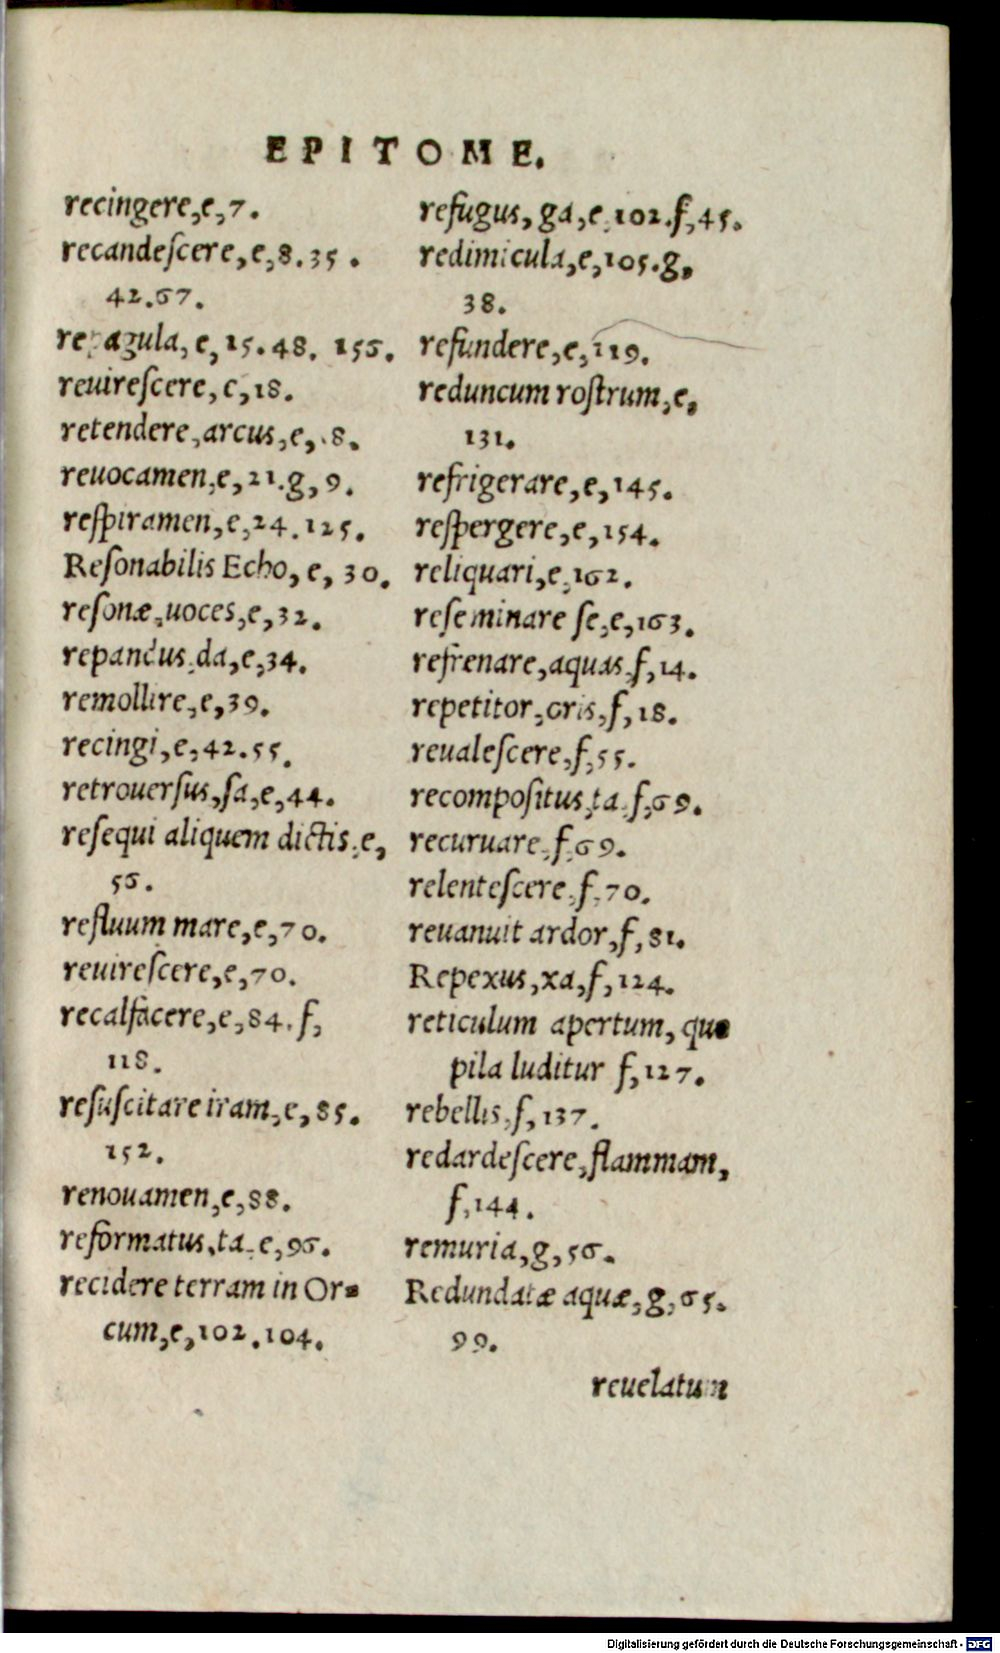 EPITOME.
recingere,e,7.
recandeſcere,e,8.35.
42.67.
repagula,e,15.48.156.
reuireſcere,e,18.
retendere,arcus,e,.8.
reuocamen,e,21.g,9.
reſpiramen,e,24.125.
Reſonabilis Echo,e,30.
reſonæ,uoces,e,32.
repandus,da,e,34.
remollire,e,39.
recingi,e,42.55.
retrouerſus,ſa,e,44.
reſequi aliquem dictis,e,
56.
refluum mare,e,70.
reuireſcere,e,70.
recalfacere,e,84.f,
118.
reſuſcitare iram,e,85.
152.
renouamen,e,88.
reformatus,ta,e,96.
recidere terram in Or-
cum,e,102.104.
refugus,ga,e,102.f,45.
redimicula,e,105.g,
38.
refundere,e,119.
reduncum roſtrum,e,
131.
refrigerare,e,145.
reſpergere,e,154.
reliquari,e,162.
reſeminare ſe,e,163.
refrenare,aquas,f,14.
repetitor,oris,f,18.
reualeſcere,f,55.
recompoſitus,ta,f,69.
recuruare,f,69.
relenteſcere,f,70.
reuanuit ardor,f,81.
Repexus,xa,f,124.
reticulum apertum, quo
pila luditur f,127.
rebellis,f,137.
redardeſcere,flammam,
f,144.
remuria,g,56.
Redundatæ aquæ,g,65.
99.
reuelatum
Digitalisierung gefördert durch die Deutsche Forschungsgemeinschaft - DFG